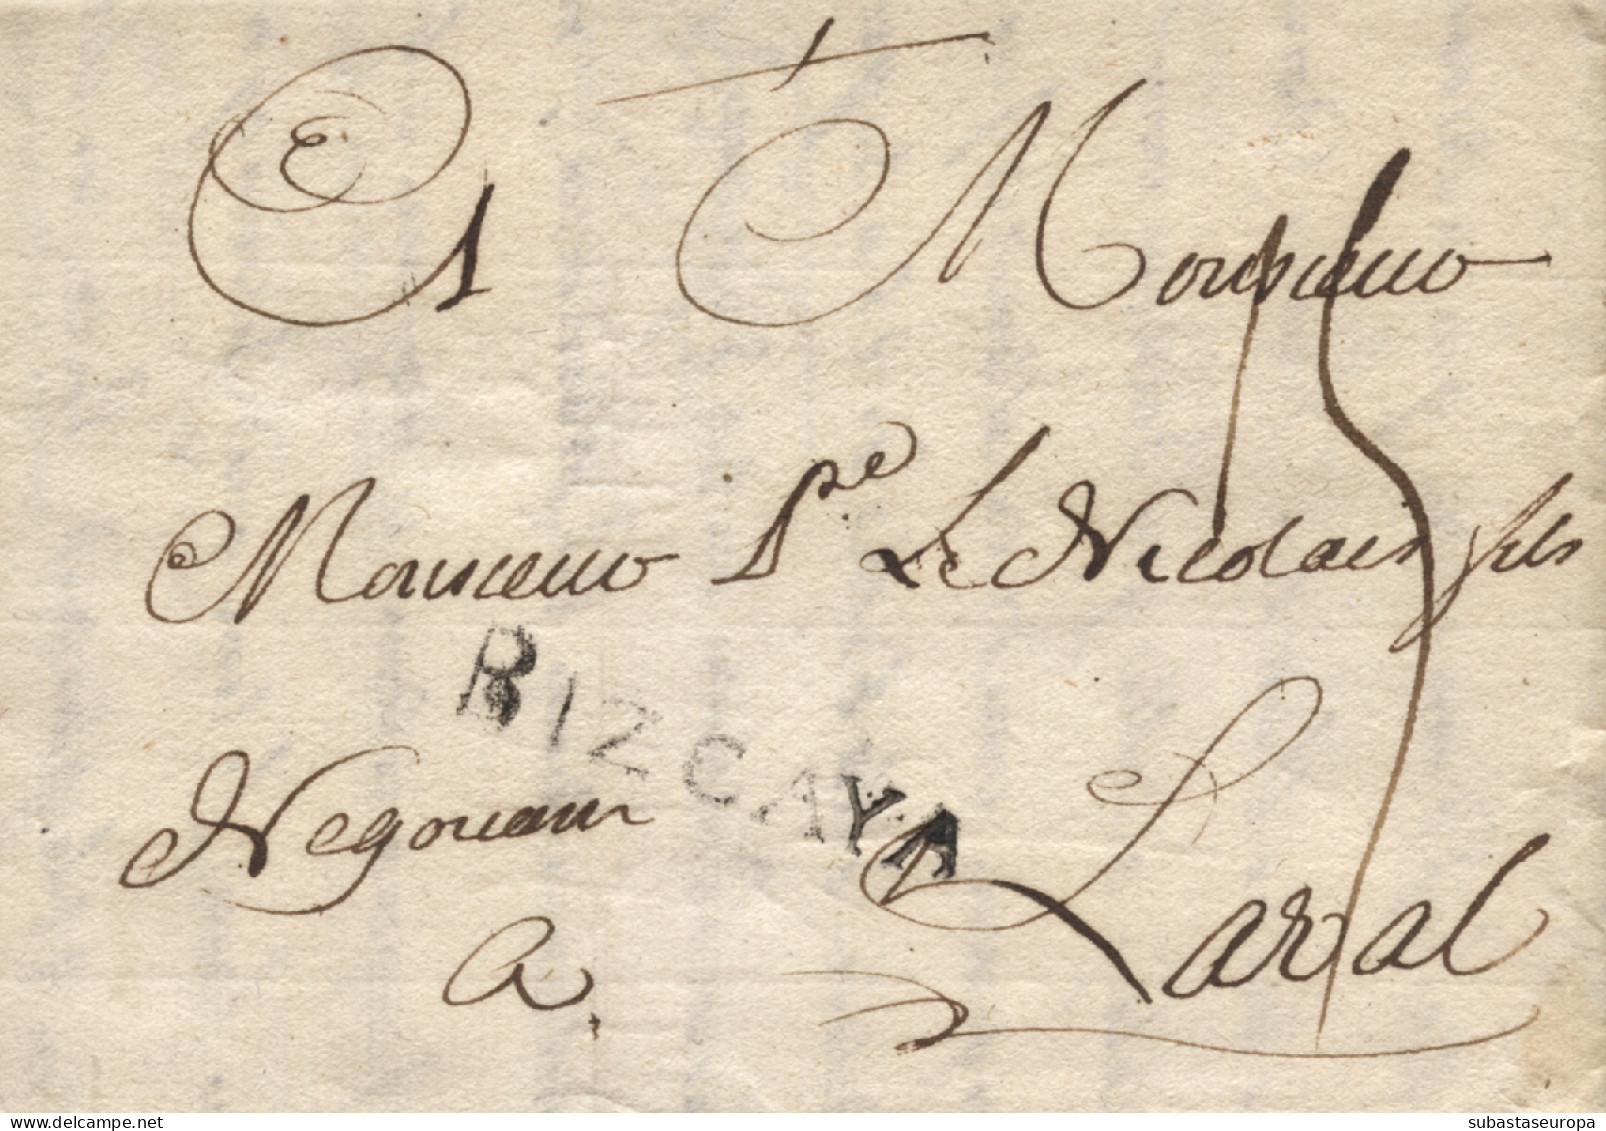 A Monsieur
Monsieur Pre Le Nicolais fils
BIZCAYA
Negociant
a Laval
subastaseuropa